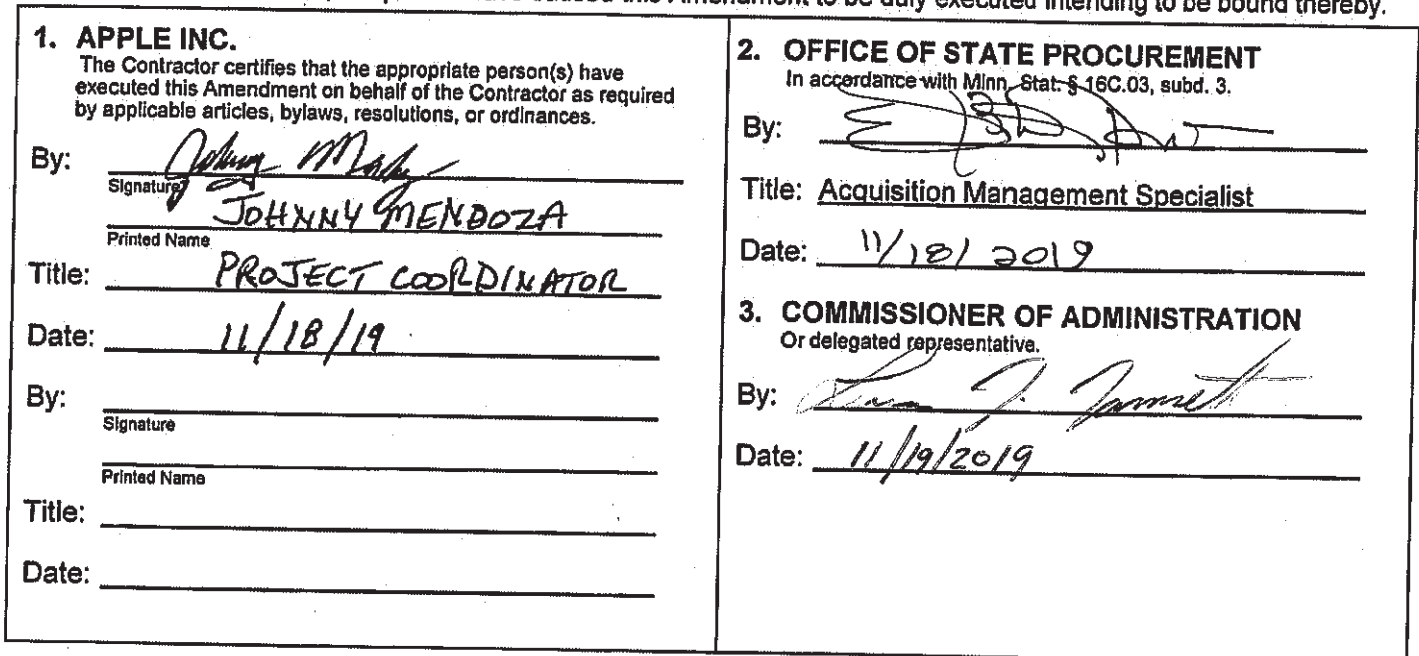 this Amendment to be duly executed intending to be bound thereby.
1. APPLE INC.
The Contractor certifies that the appropriate person(s) have
executed this Amendment on behalf of the Contractor as required
by applicable articles, bylaws, resolutions, or ordinances.
By:
Signature
JOHNNY MENDOZA
Printed Name
Title: PROJECT COORDINATOR
Date: 11/18/19
By:
Signature
Printed Name
Title:
Date:
2. OFFICE OF STATE PROCUREMENT
In accordance with Minn. Stat. § 16C.03, subd. 3.
By:
Title: Acquisition Management Specialist
Date: 11/18/2019
3. COMMISSIONER OF ADMINISTRATION
Or delegated representative.
By:
Date: 11/19/2019